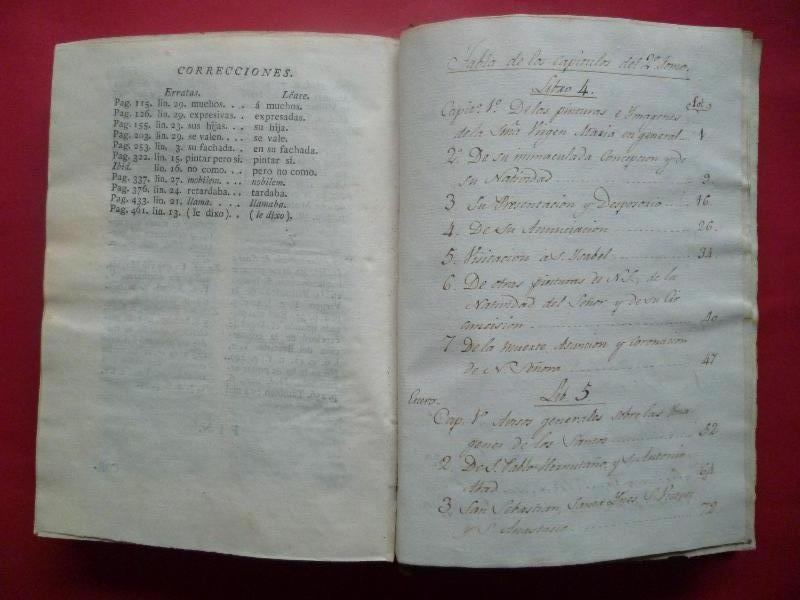 CORRECCIONES.
Erratas. Léase.
Pag. 115. lin. 29. muchos. . . á muchos.
Pag. 126. lin. 29. expresivas. . expresadas.
Pag. 155. lin. 23. sus hijas. . . su hija.
Pag. 203. lin. 29. se valen. . . se vale.
Pag. 253. lin. 3. su fachada. . en su fachada.
Pag. 322. lin. 15. pintar pero si. pintar sí.
Ibid. lin. 16. no como. . . pero no como.
Pag. 337. lin. 27. mobilem. . . nobilem.
Pag. 376. lin. 24. retardaba. . . tardaba.
Pag. 433. lin. 21. llama. . . llamaba.
Pag. 461. lin. 13. ( le dixo). . (le dixo).
Tabla de los capitulos del 2º tomo.
Libro 4.
Fol.
Capitº. 1º. De las pinturas e Ymagenes
de la Virgen Maria en general 1
2. De su inmaculada Concepcion y de
su Natividad 9
3 Su Presentacion y Desposorio 16
4. De su Anunciacion 26
5. Visitacion a S. Ysabel 34
6. De otras pinturas de N.S., de la
Natividad del Señor y de su Cir
cuncision 40
7. De la muerte, Asuncion y Coronacion
de N. Señora 47
Enero. Lib. 5
Cap. 1º. Avisos generales sobre las Yma
genes de los Santos 52
2. De S. Pablo Hermitaño, y S. Antonio
Abad 64
3. San Sebastian, Santa Ynes, S. Vicente
y S. Anastasio 72